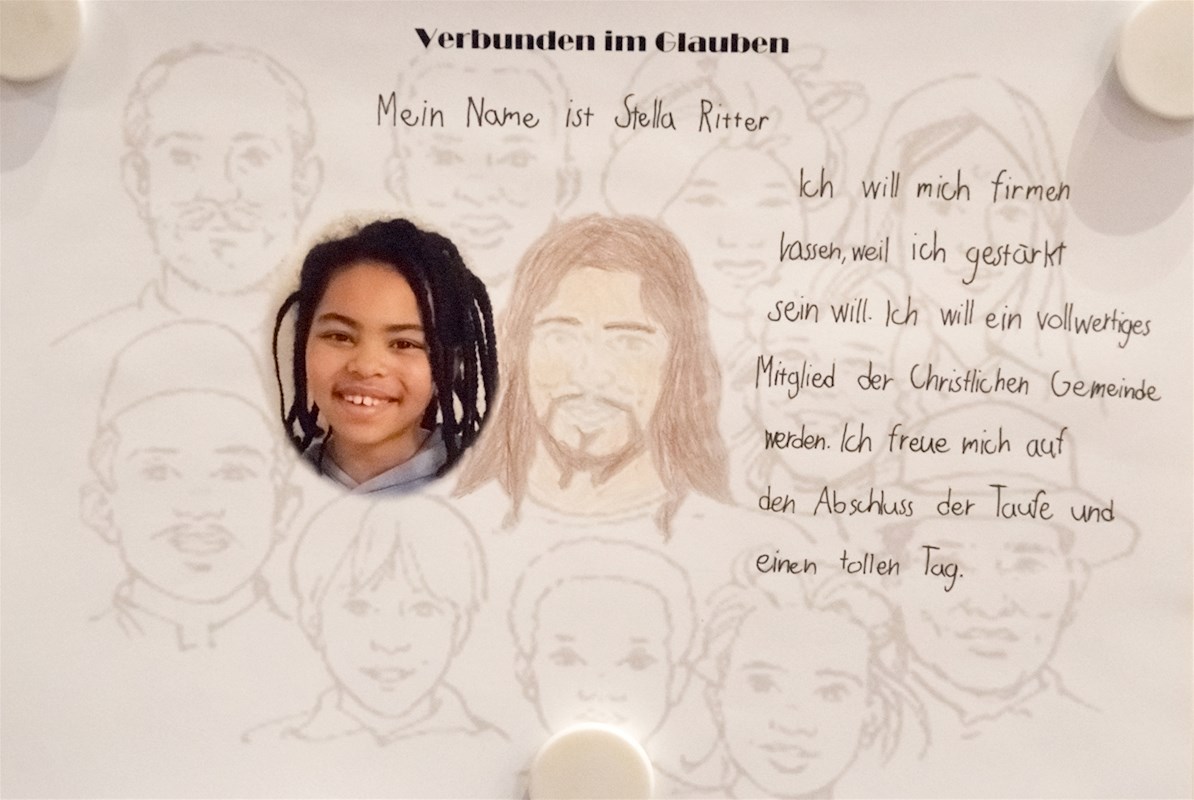 Verbunden im Glauben
Mein Name ist Stella Ritter
Ich will mich firmen
lassen, weil ich gestärkt
sein will. Ich will ein vollwertiges
Mitglied der Christlichen Gemeinde
werden. Ich freue mich auf
den Abschluss der Taufe und
einen tollen Tag.